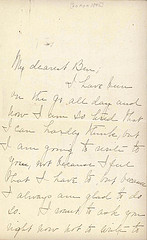 My dearest Ben,
I have been
on the go all day and
now I am so tired that
I can hardly think but
I am going to write to
you, not because I feel
that I have to but because
I always am glad to do
so. I want to ask you
right now not to write to